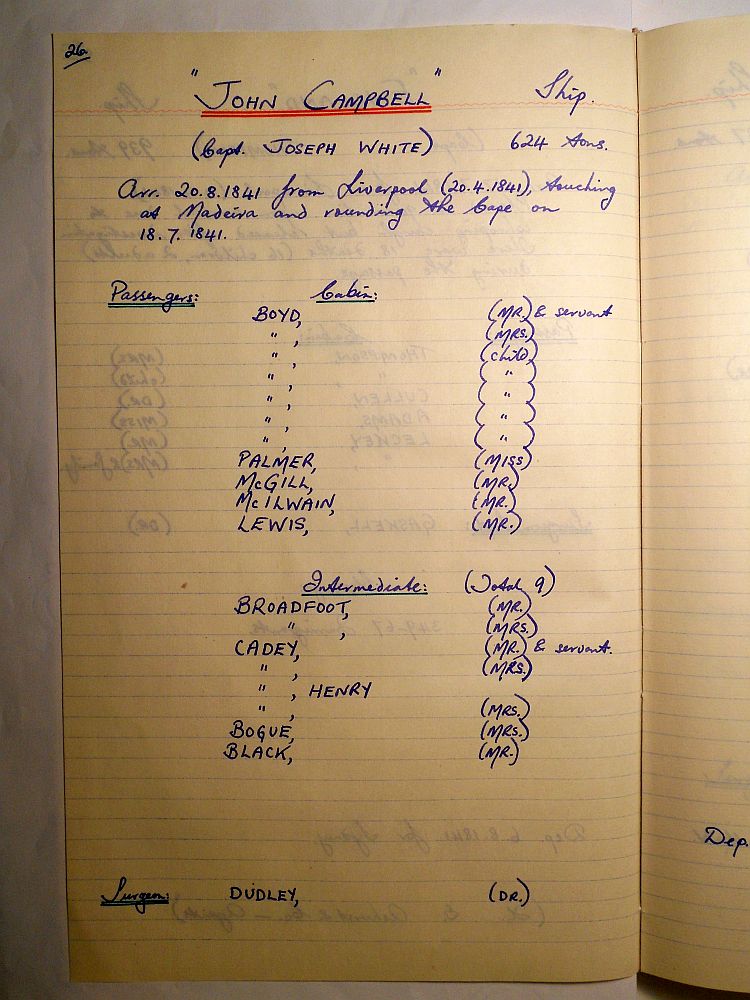 26.
"JOHN CAMPBELL" Ship.
(Capt. JOSEPH WHITE) 624 tons.
Arr. 20.8.1841 from Liverpool (20.4.1841), touching
at Madeira and rounding the Cape on
18.7.1841.
Passengers: Cabin:
BOYD, (MR.) & servant
" , (MRS.)
" , (child)
" , ( " )
" , ( " )
" , ( " )
" , ( " )
PALMER, (MISS)
McGILL, (MR.)
McILWAIN, (MR.)
LEWIS, (MR.)
Intermediate: (Total 9)
BROADFOOT, (MR.)
" , (MRS.)
CADEY, (MR.) & servant.
" , (MRS.)
" , HENRY
" , (MRS.)
BOGUE, (MRS.)
BLACK, (MR.)
Surgeon: DUDLEY, (DR.)
Dep.